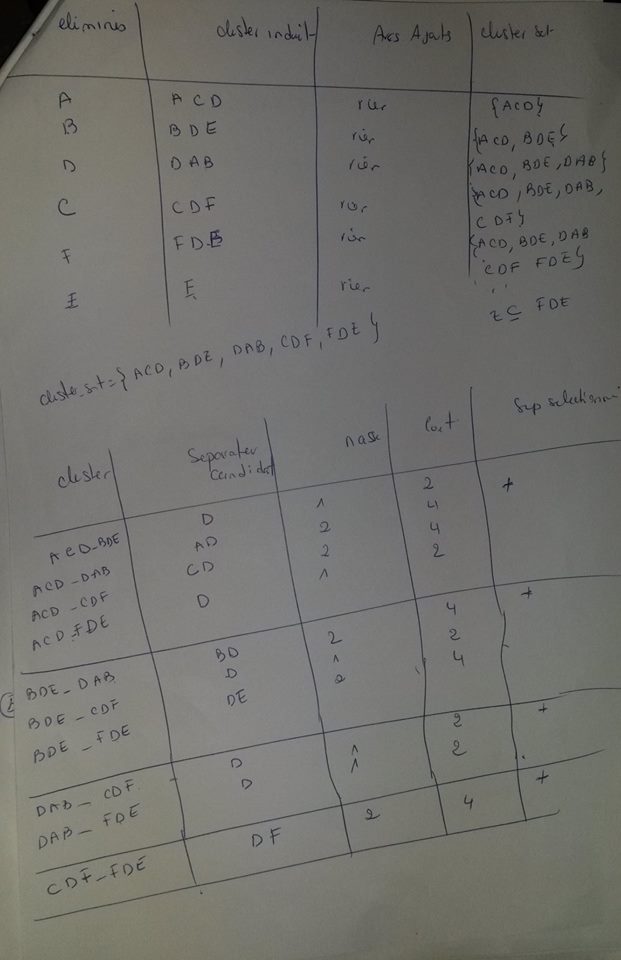 eliminés cluster induit Arcs Ajouts cluster set
A ACD rier {ACD}
B BDE rier {ACD, BDE}
D DAB rier {ACD, BDE, DAB}
C CDF rier {ACD, BDE, DAB,
CDF}
F FDE rier {ACD, BDE, DAB
CDF FDE}
E E rier
E ⊆ FDE
cluster_set = {ACD, BDE, DAB, CDF, FDE}
cluster Separater candidat masse Cout Sep selectionné
ACD_BDE D 1 2 +
ACD_DAB AD 2 4
ACD_CDF CD 2 4
ACD_FDE D 1 2
BDE_DAB BD 2 4 +
BDE_CDF D 1 2
BDE_FDE DE 2 4
DAB_CDF D 1 2 +
DAB_FDE D 1 2
CDF_FDE DF 2 4 +